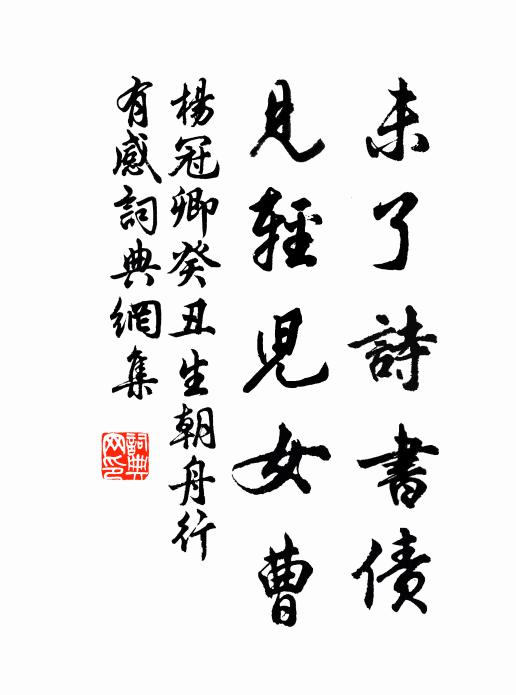 未了詩書債
見輕児女曹
楊冠卿癸丑生朝舟行
有感詞典網集
詞典
网印